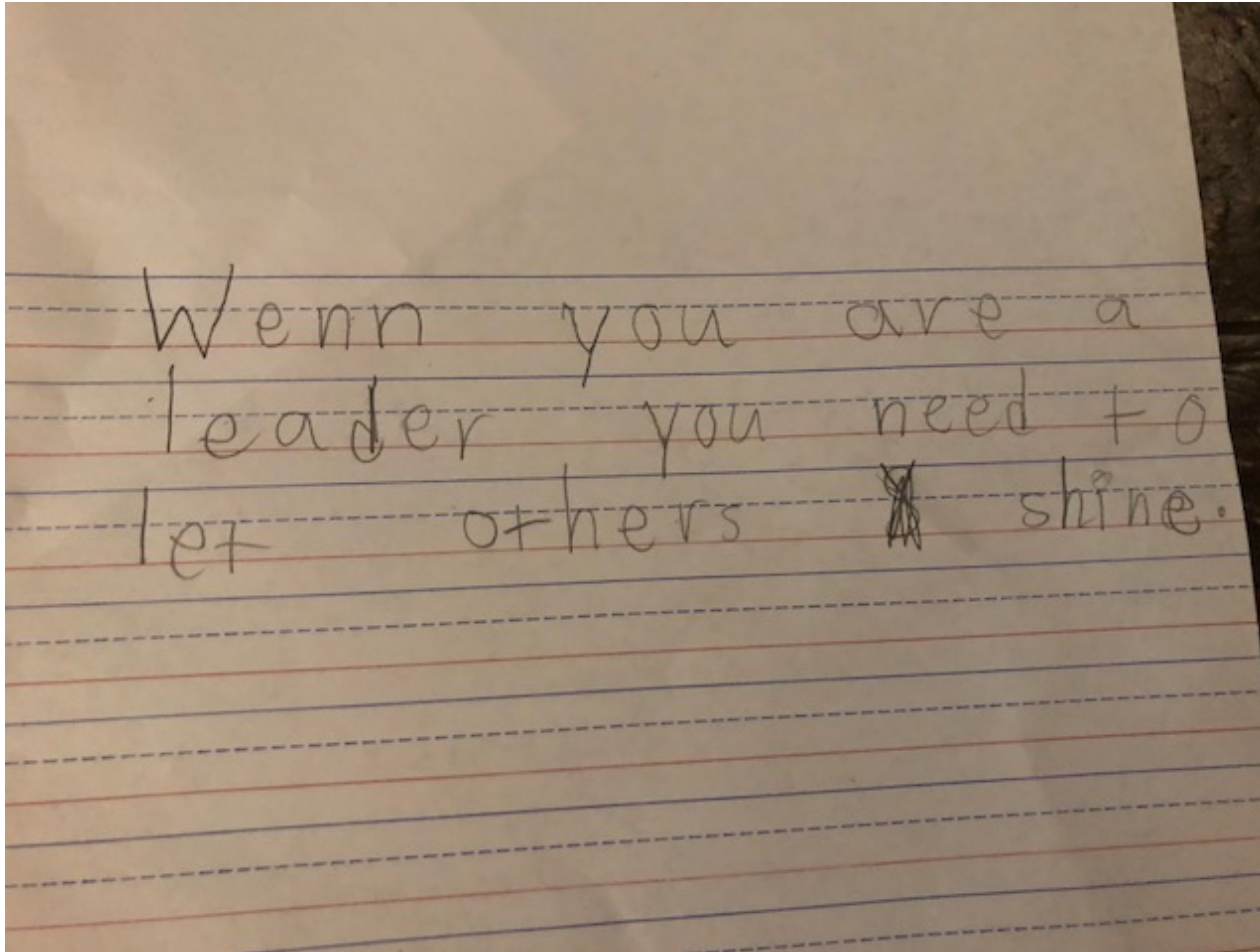 Wenn you are a
leader you need to
let others shine.